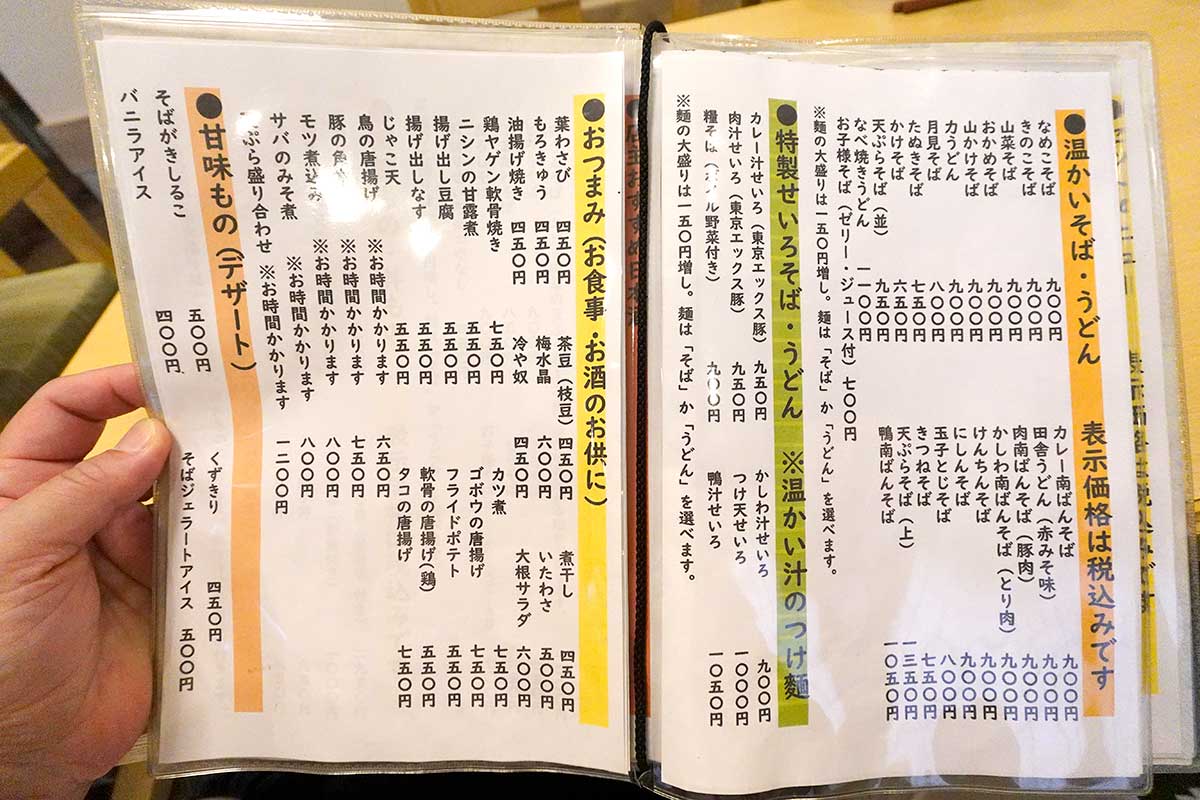 ●温かいそば・うどん 表示価格は税込みです
なめこそば 九〇〇円
きのこそば 九〇〇円
山菜そば 九〇〇円
おかめそば 九〇〇円
山かけそば 九〇〇円
力うどん 九〇〇円
月見そば 八〇〇円
たぬきそば 七五〇円
かけそば 六五〇円
天ぷらそば(並) 九五〇円
なべ焼きうどん 一一〇〇円
お子様そば(ゼリー・ジュース付) 七〇〇円
※麺の大盛りは一五〇円増し。麺は「そば」か「うどん」を選べます。
カレー南ばんそば 九〇〇円
田舎うどん(赤みそ味) 九〇〇円
肉南ばんそば(豚肉) 九〇〇円
かしわ南ばんそば(とり肉) 九〇〇円
けんちんそば 九〇〇円
にしんそば 九〇〇円
玉子とじそば 八〇〇円
きつねそば 七五〇円
天ぷらそば(上) 一三五〇円
鴨南ばんそば 一〇五〇円
●特製せいろそば・うどん ※温かい汁のつけ麺
カレー汁せいろ(東京エックス豚) 九五〇円
肉汁せいろ(東京エックス豚) 九五〇円
糧そば(ボウル野菜付き) 九〇〇円
※麺の大盛りは一五〇円増し。麺は「そば」か「うどん」を選べます。
かしわ汁せいろ 九〇〇円
つけ天せいろ 一〇〇〇円
鴨汁せいろ 一〇五〇円
●おつまみ(お食事・お酒のお供に)
葉わさび 四五〇円
もろきゅう 四五〇円
油揚げ焼き 四五〇円
鶏ヤゲン軟骨焼き 七五〇円
ニシンの甘露煮 五五〇円
揚げ出し豆腐 五五〇円
揚げ出しなす 五五〇円
じゃこ天 五五〇円
鳥の唐揚げ ※お時間かかります 六五〇円
豚の角 ※お時間かかります 七五〇円
モツ煮込み ※お時間かかります 八〇〇円
サバのみそ煮 ※お時間かかります 八〇〇円
天ぷら盛り合わせ ※お時間かかります 一二〇〇円
茶豆(枝豆) 四五〇円
梅水晶 六〇〇円
冷や奴 四五〇円
煮干し 四五〇円
いたわさ 五〇〇円
大根サラダ 六〇〇円
カツ煮 七五〇円
ゴボウの唐揚げ 五五〇円
フライドポテト 五五〇円
軟骨の唐揚げ(鶏) 五五〇円
タコの唐揚げ 七五〇円
●甘味もの(デザート)
そばがきしるこ 五〇〇円
バニラアイス 四〇〇円
くずきり 四五〇円
そばジェラートアイス 五〇〇円